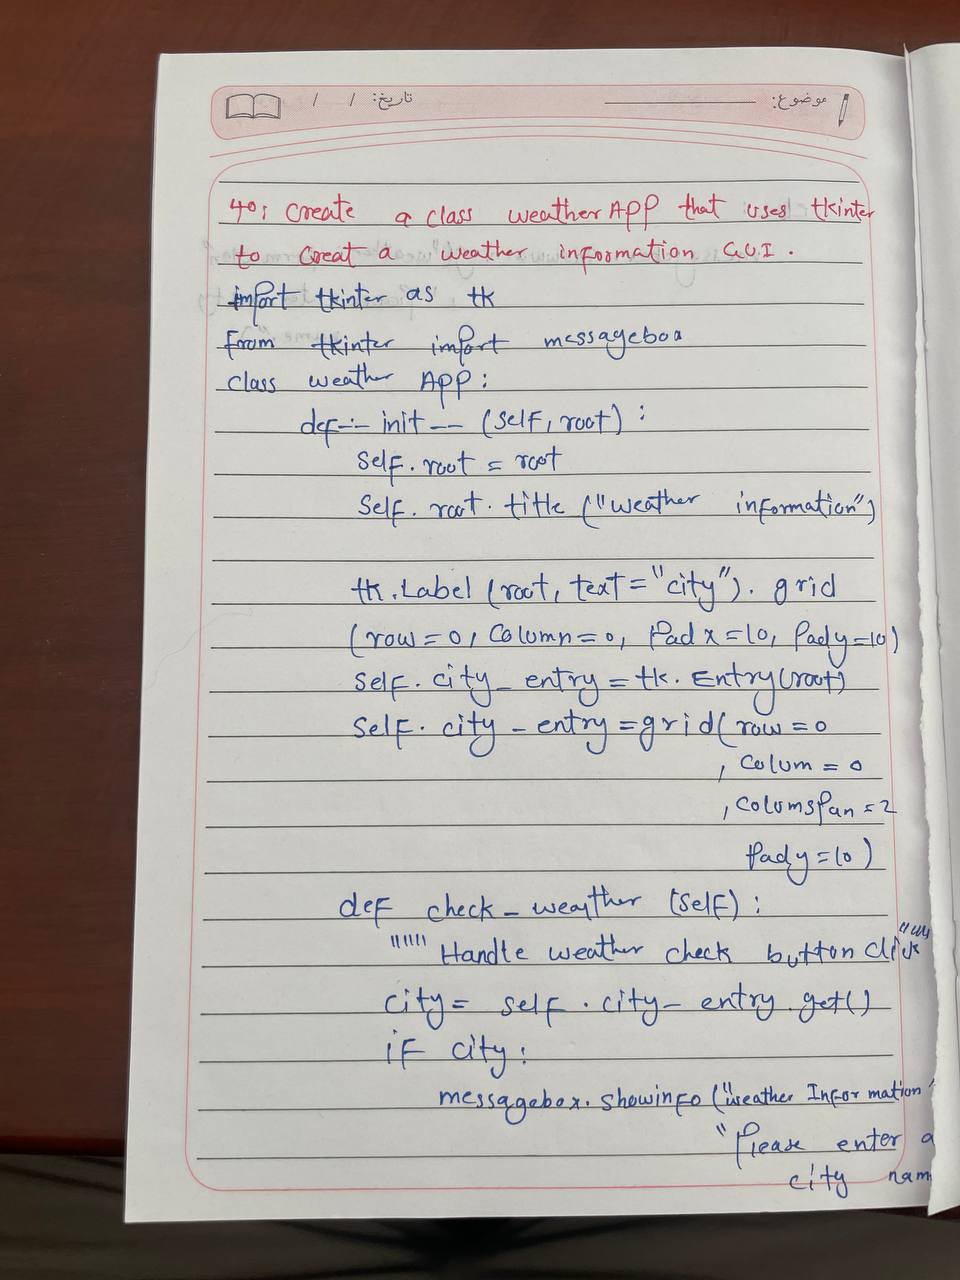 موضوع: تاریخ: / /
40: Create a class weather APP that uses tkinter
to Creat a weather information G.U.I.
import tkinter as tk
From tkinter import messagebox
class weather APP:
def -- init -- (self, root) :
Self.root = root
Self.root.title ("weather information")
tk.Label (root, text = "city"). grid
(row = 0, Column = 0, Pad x = 10, Pady = 10)
Self. city_ entry = tk. Entry(root)
Self. city - entry = grid( row = 0
, Colum = 0
, Columspan = 2
Pady = 10 )
def check - weather (Self) :
""""" Handle weather check button Click """
city = self . city - entry . get()
if city :
messagebox. showinfo ("weather Information"
"Please enter a
city nam